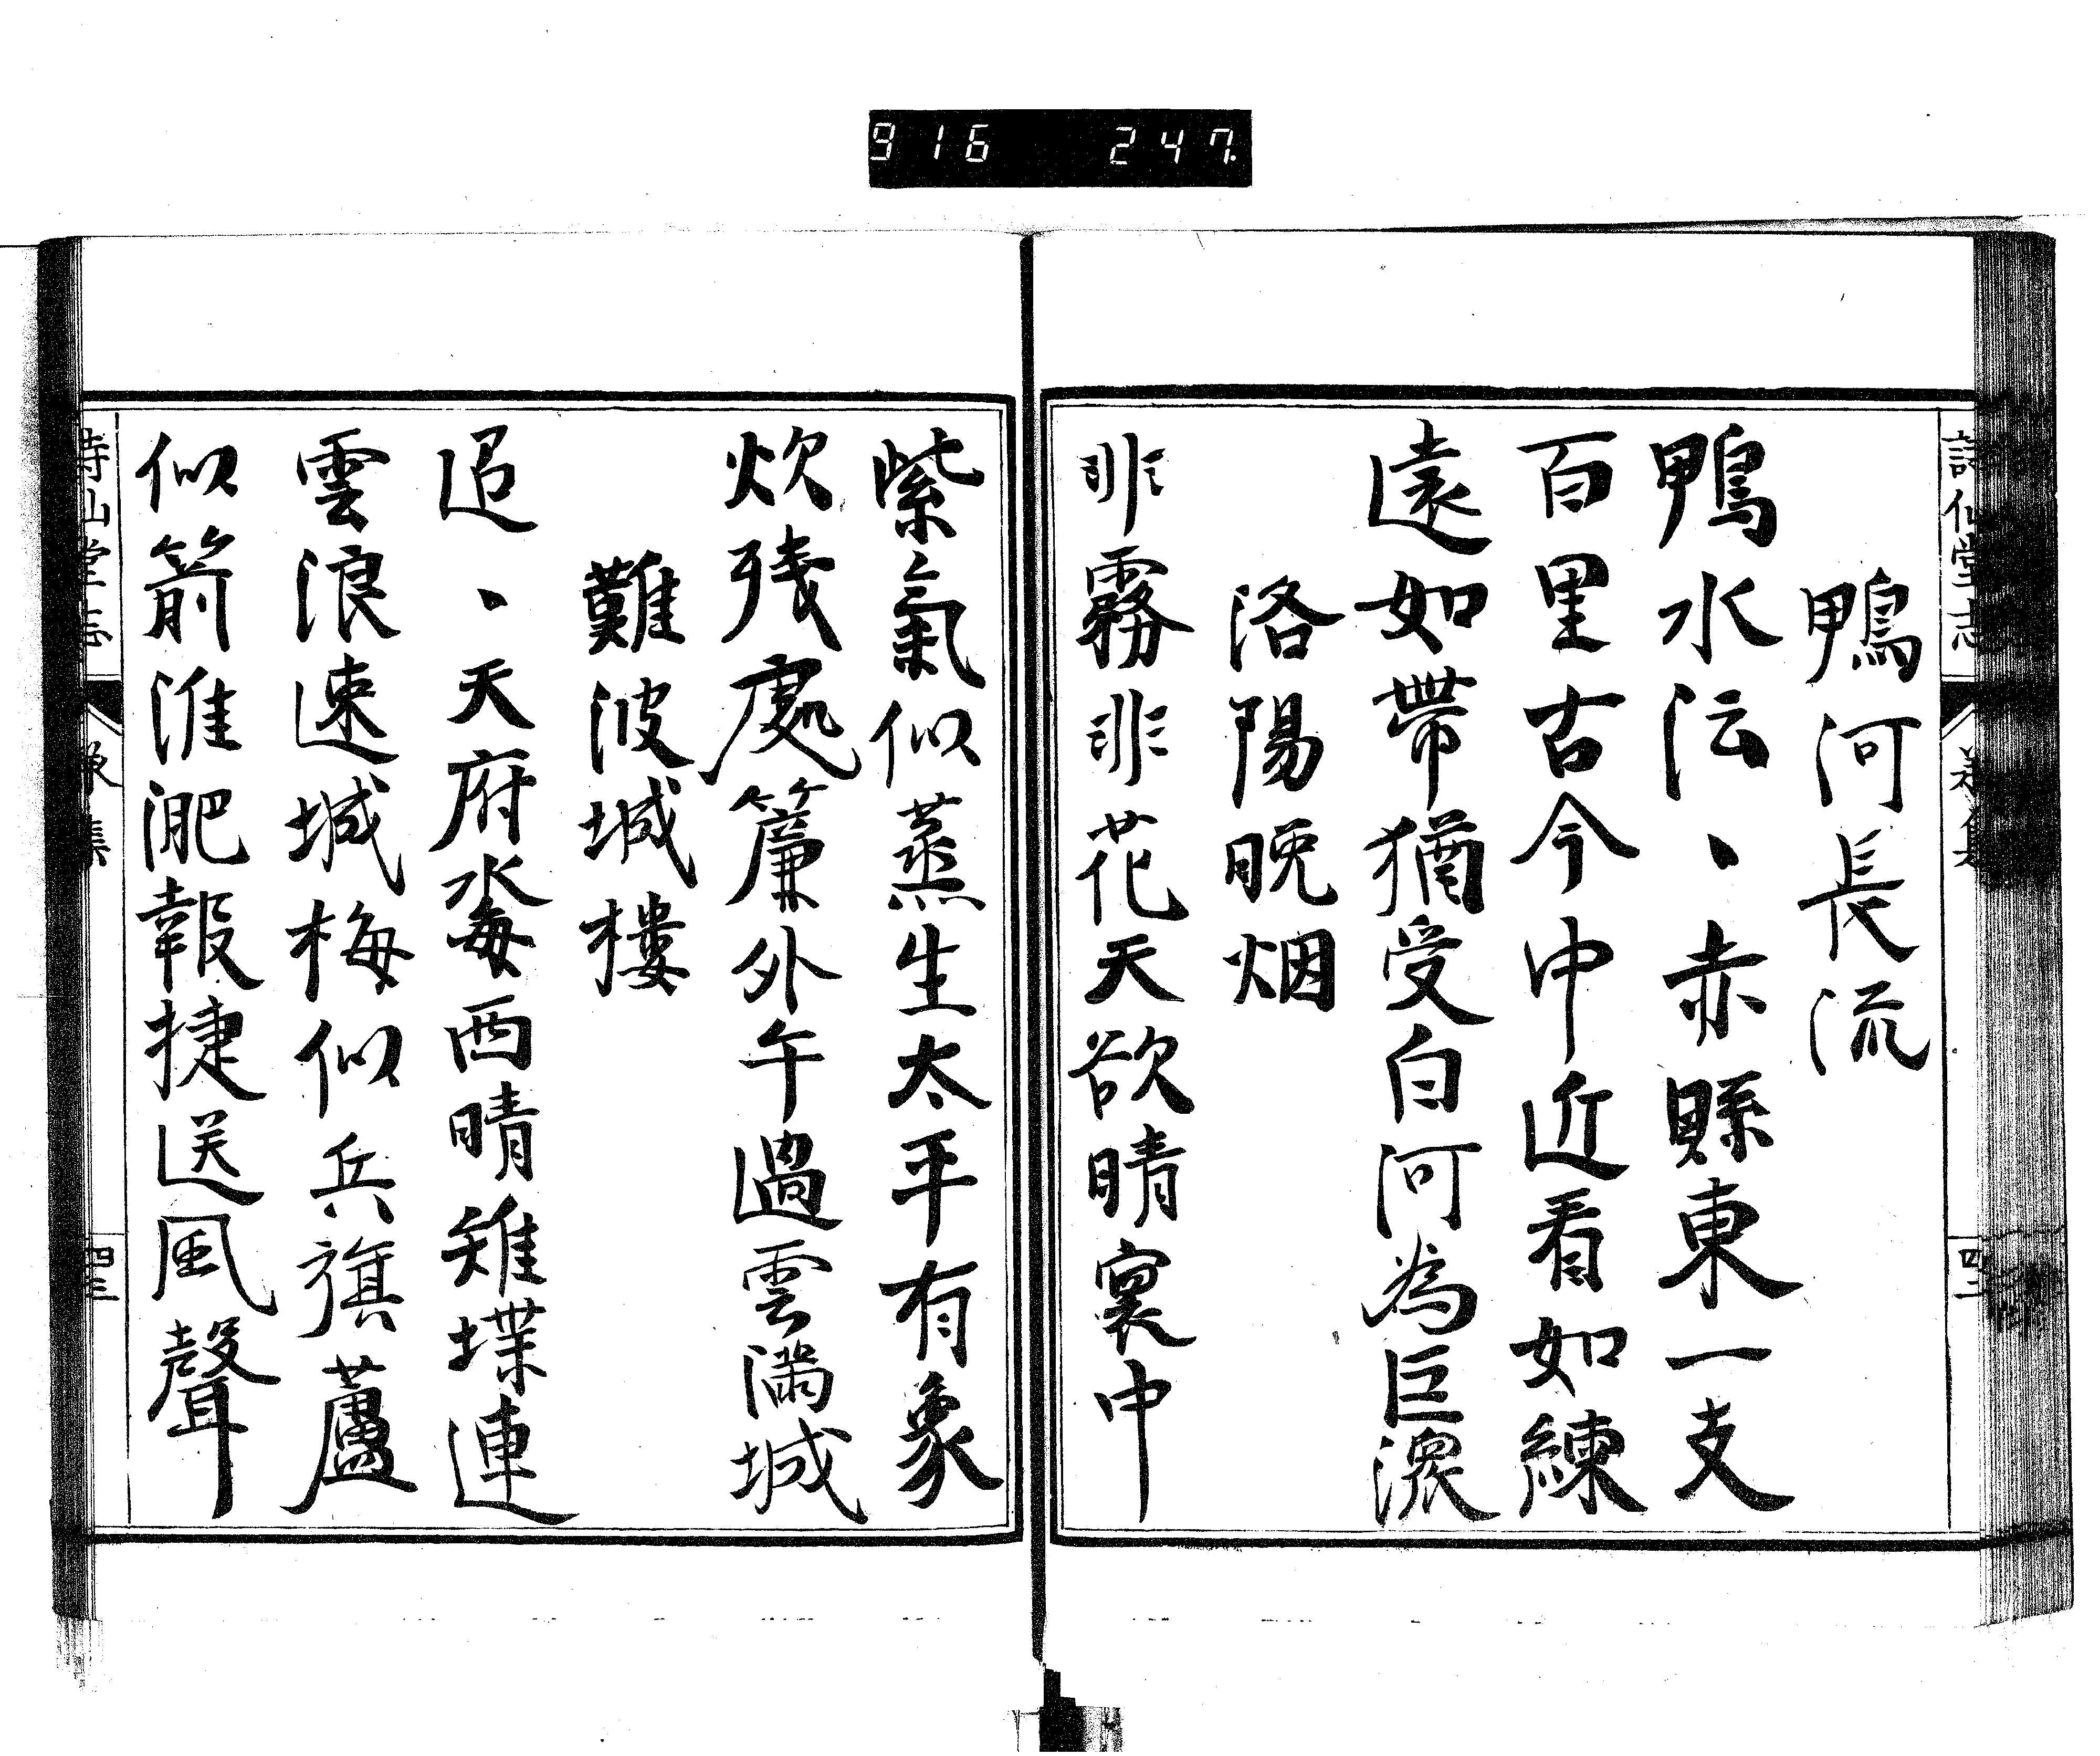 916 247.
詩仙堂志
四二
鴨河長流
鴨水沄、赤縣東一支
百里古今中近看如練
遠如帶猶受白河為巨瀤
洛陽晚烟
非霧非花天欲晴寰中
紫氣似蒸生太平有象
炊殘處簾外午過雲滿城
難波城樓
迢、天府海西晴雉堞連
雲浪速城梅似兵旗蘆
似箭淮淝報捷送風聲
四三